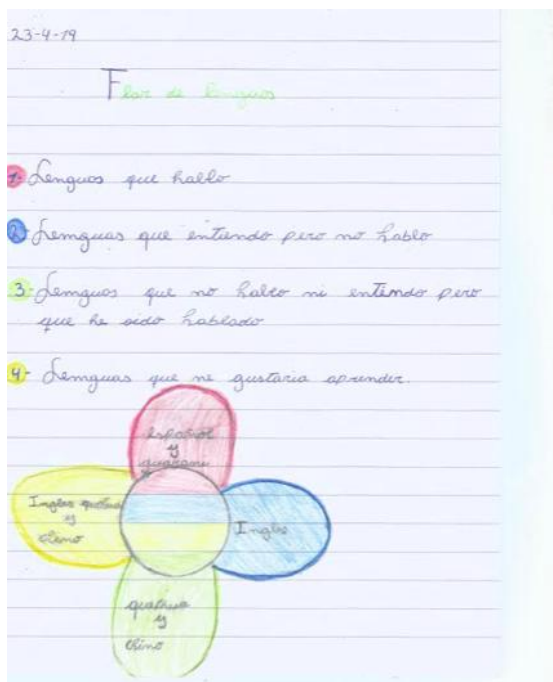 23-4-19
Flor de lenguas
1- Lenguas que hablo
2- Lemguas que entiendo pero no hablo
3- Lemguas que no hablo ni entiendo pero
que he oido hablado
4- Lemguas que me gustaria aprender.
español
y
guarani
Ingles quechua
y
chino
Ingles
quechua
y
chino